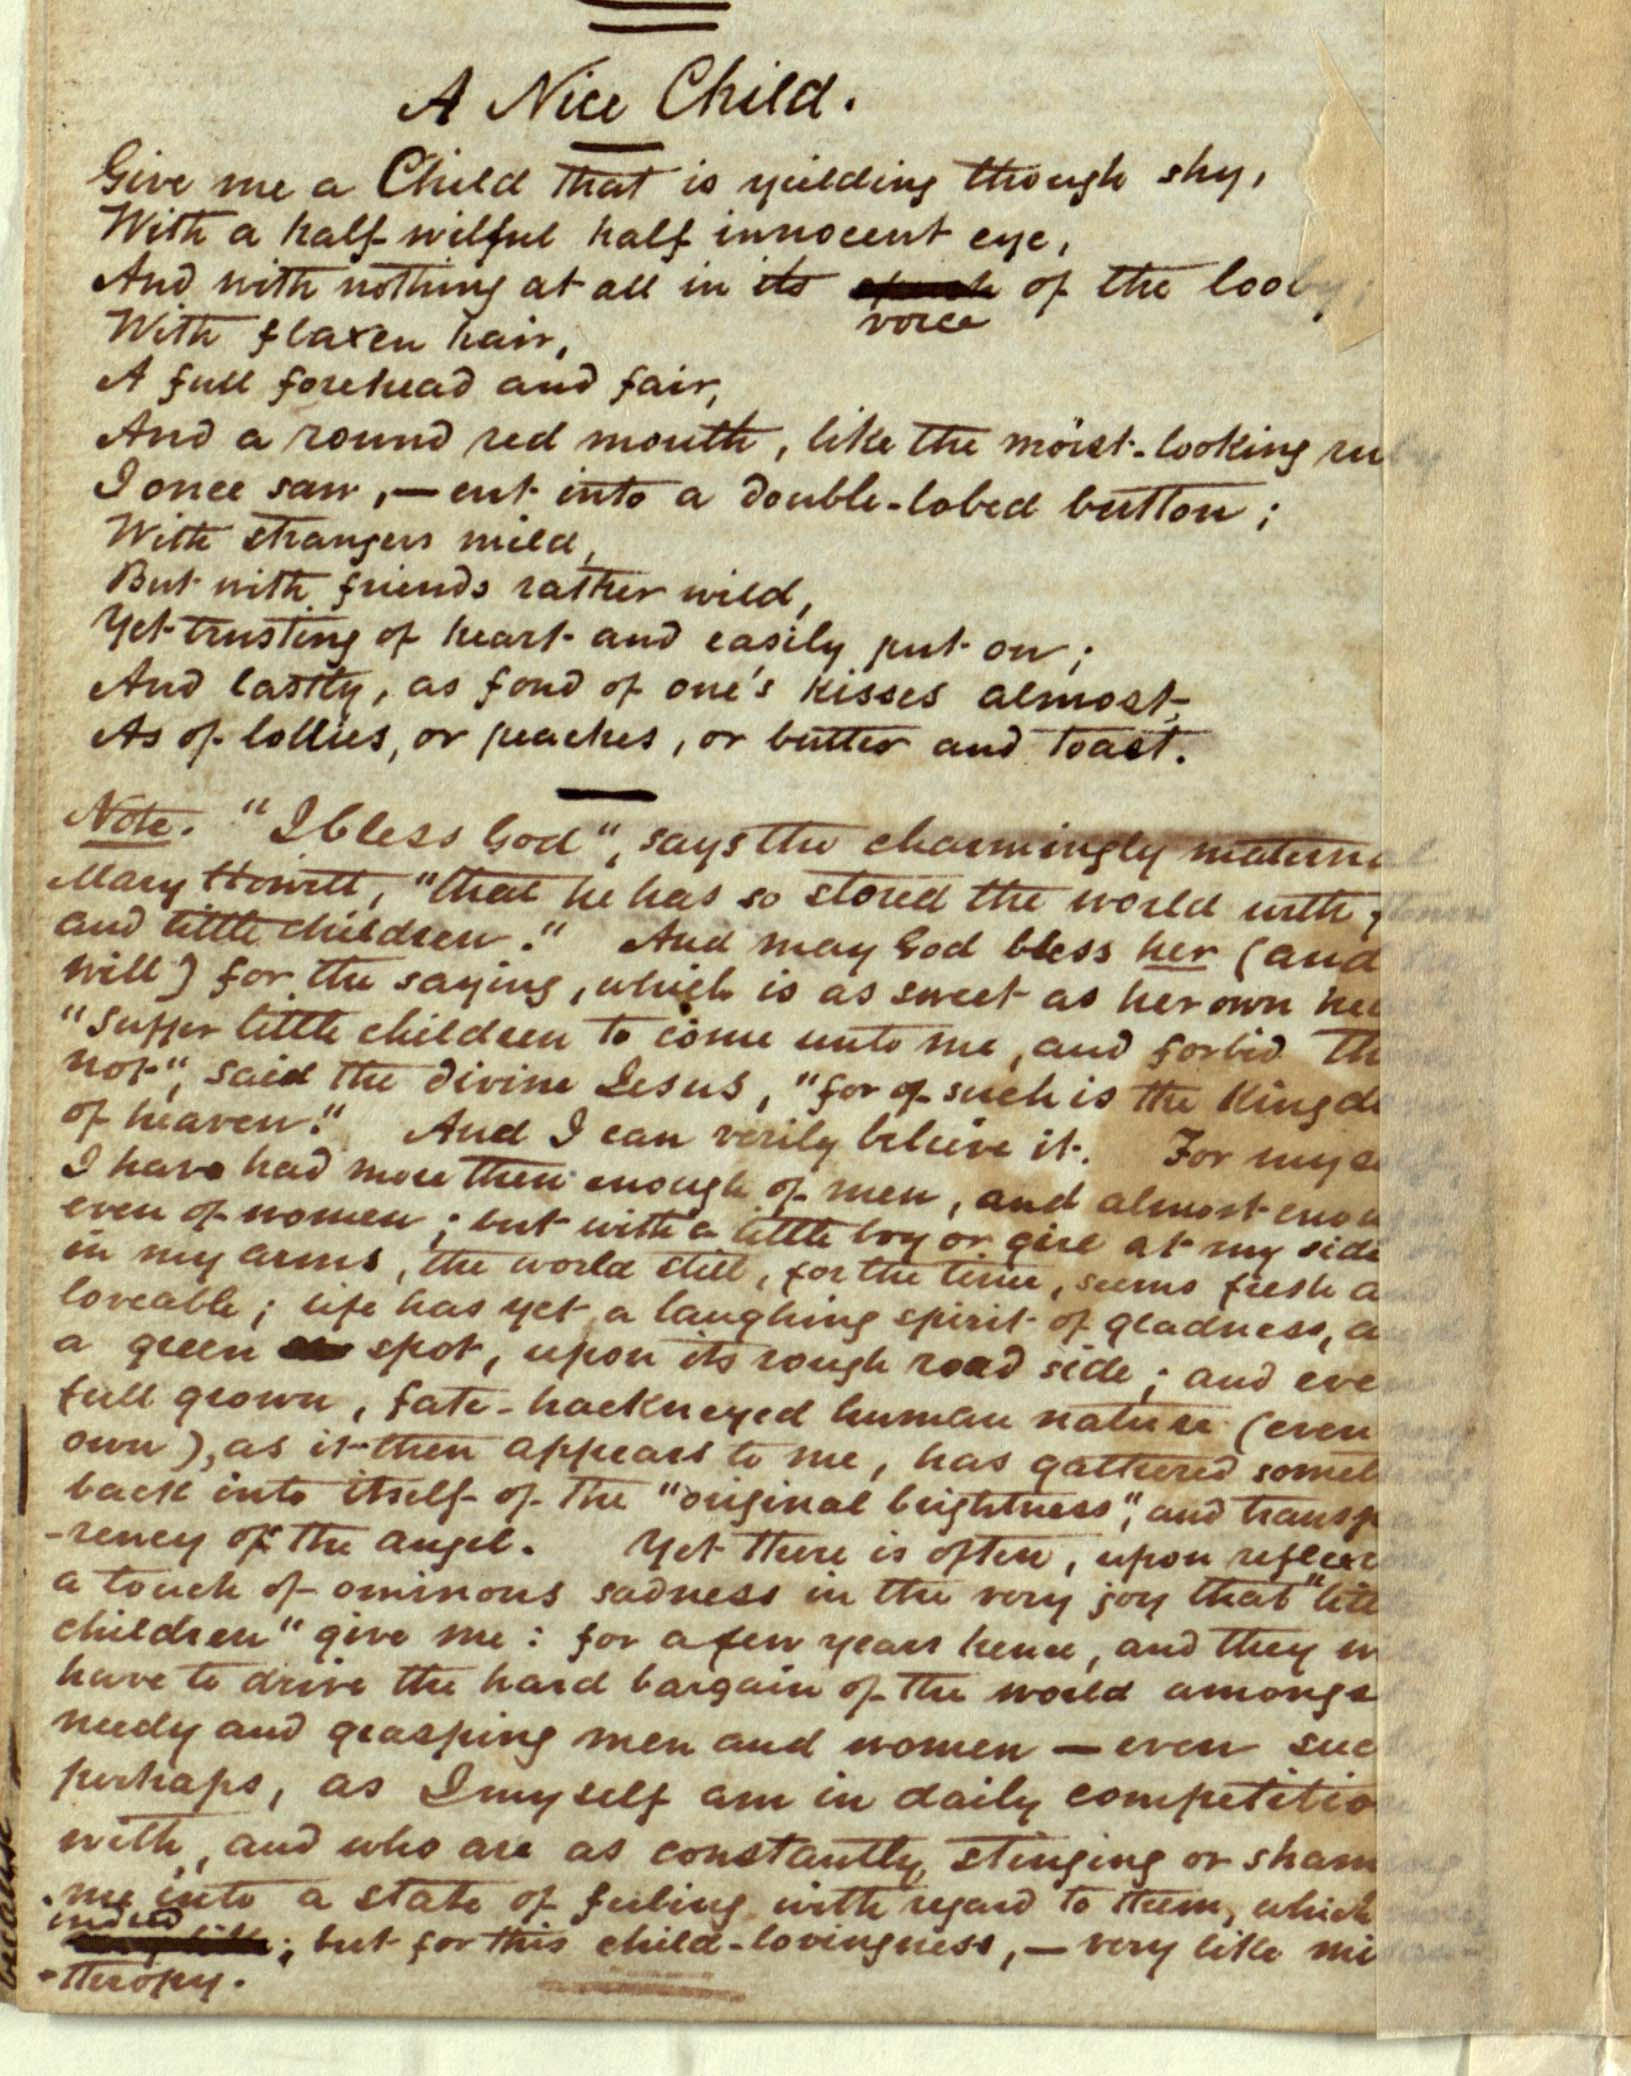 A Nice Child.
Give me a Child that is yielding though shy,
With a half-wilful half innocent eye,
And with nothing at all in its voice of the looby;
With flaxen hair,
A full forehead and fair,
And a round red mouth, like the moist-looking ruby
I once saw,—cut into a double-lobed button;
With strangers mild,
But with friends rather wild,
Yet trusting of heart and easily put on;
And lastly, as fond of one's kisses almost,
As of lollies, or peaches, or butter and toast.
Note. "I bless God", says the charmingly maternal
Mary Howitt, "that he has so stored the world with
and little children." And may God bless her (and
will) for the saying, which is as sweet as her own
"Suffer little children to come unto me, and forbid th
not", said the divine Jesus, "for of such is the Kingd
of heaven." And I can verily believe it. For myse
I have had more then enough of men, and almost enou
even of women; but with a little boy or girl at my side
in my arms, the world still, for the time, seems fresh a
loveable; life has yet a laughing spirit of gladness, a
a green spot, upon its rough road side; and eve
full grown, fate-hackneyed human nature (even
own), as it then appears to me, has gathered somet
back into itself of the "original brightness", and transp
-rency of the angel. Yet there is often, upon reflex
a touch of ominous sadness in the very joy that "litt
children" give me: for a few years hence, and they w
have to drive the hard bargain of the world amongs
needy and grasping men and women — even suc
perhaps, as I myself am in daily competitio
with, and who are as constantly stinging or sham
me into a state of feeling with regard to them, which
indeed; but for this child-lovingness,— very like mi
-thropy.